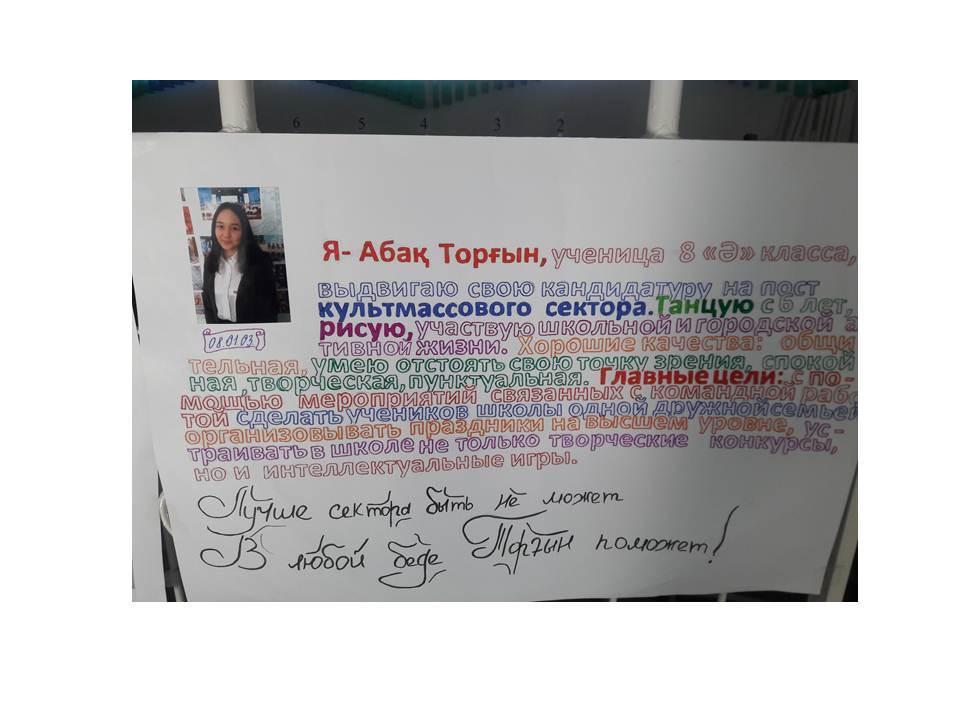 6 5 4 3 2
Я- Абақ Торғын, ученица 8 «Ә» класса,
выдвигаю свою кандидатуру на пост
культмассового сектора. Танцую с 6 лет,
08.01.03
рисую, участвую школьной и городской а
тивной жизни. Хорошие качества: общи
тельная, умею отстоять свою точку зрения, спокой
ная, творческая, пунктуальная. Главные цели: с по-
мощью мероприятий связанных с командной рабо
той сделать учеников школы одной дружной семьей
организовывать праздники на высшем уровне, ус -
траивать в школе не только творческие конкурсы,
но и интеллектуальные игры.
Лучше сектора быть не может
В любой беде Торғын поможет!